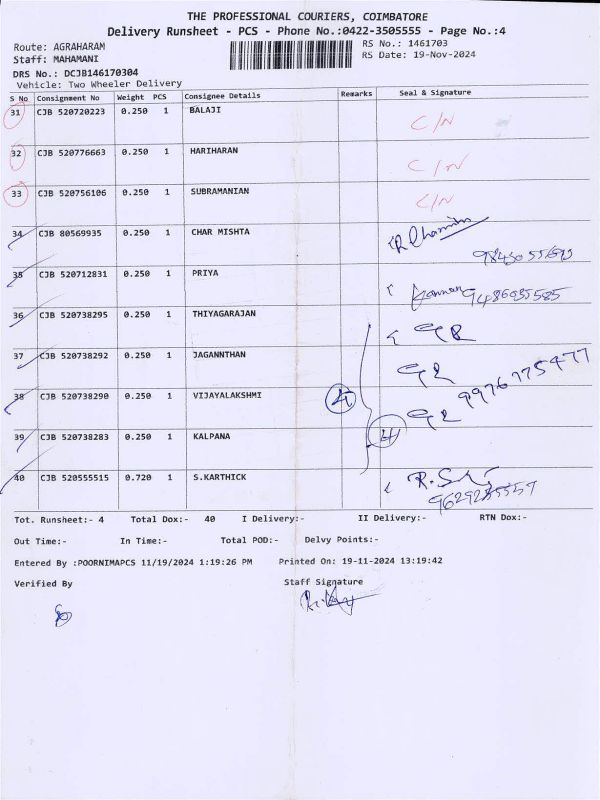 THE PROFESSIONAL COURIERS, COIMBATORE
Delivery Runsheet - PCS - Phone No.:0422-3505555 - Page No.:4
Route: AGRAHARAM RS No.: 1461703
Staff: MAHAMANI RS Date: 19-Nov-2024
DRS No.: DCJB146170304
Vehicle: Two Wheeler Delivery
S No Consignment No Weight PCS Consignee Details Remarks Seal & Signature
31 CJB 520720223 0.250 1 BALAJI C/N
32 CJB 520776663 0.250 1 HARIHARAN C/N
33 CJB 520756106 0.250 1 SUBRAMANIAN C/N
34 CJB 80569935 0.250 1 CHAR MISHTA
35 CJB 520712831 0.250 1 PRIYA 9486935585
36 CJB 520738295 0.250 1 THIYAGARAJAN
37 CJB 520738292 0.250 1 JAGANNTHAN
9976775477
38 CJB 520738290 0.250 1 VIJAYALAKSHMI 4
39 CJB 520738283 0.250 1 KALPANA 4
40 CJB 520555515 0.720 1 S.KARTHICK
9629285557
Tot. Runsheet:- 4 Total Dox:- 40 I Delivery:- II Delivery:- RTN Dox:-
Out Time:- In Time:- Total POD:- Delvy Points:-
Entered By :POORNIMAPCS 11/19/2024 1:19:26 PM Printed On: 19-11-2024 13:19:42
Verified By Staff Signature